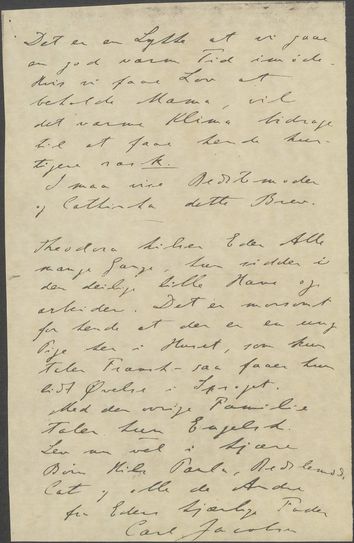 Det er en Lykke at vi gaae
en god varm Tid imöde.
Hvis vi faae Lov at
beholde Mama, vil
det varme Klima bidrage
til at faae hende hur-
tigere rask.
I maa vise Bedstemoder
og Cathinka dette Brev.
Theodora hilser Eder Alle
mange Gange, hun sidder i
den deilige lille Have og
arbeider. Det er morsomt
for hende at der er en ung
Pige her i Huset, som kun
taler Fransk - saa faaer hun
lidt Øvelse i Sproget.
Med den øvrige Familie
taler hun Engelsk.
Lev nu vel i kjære
Børn Hils Paula, Bedstemoder,
Cat og alle de Andre
fra Eders kjærlige Fader
Carl Jacobsen